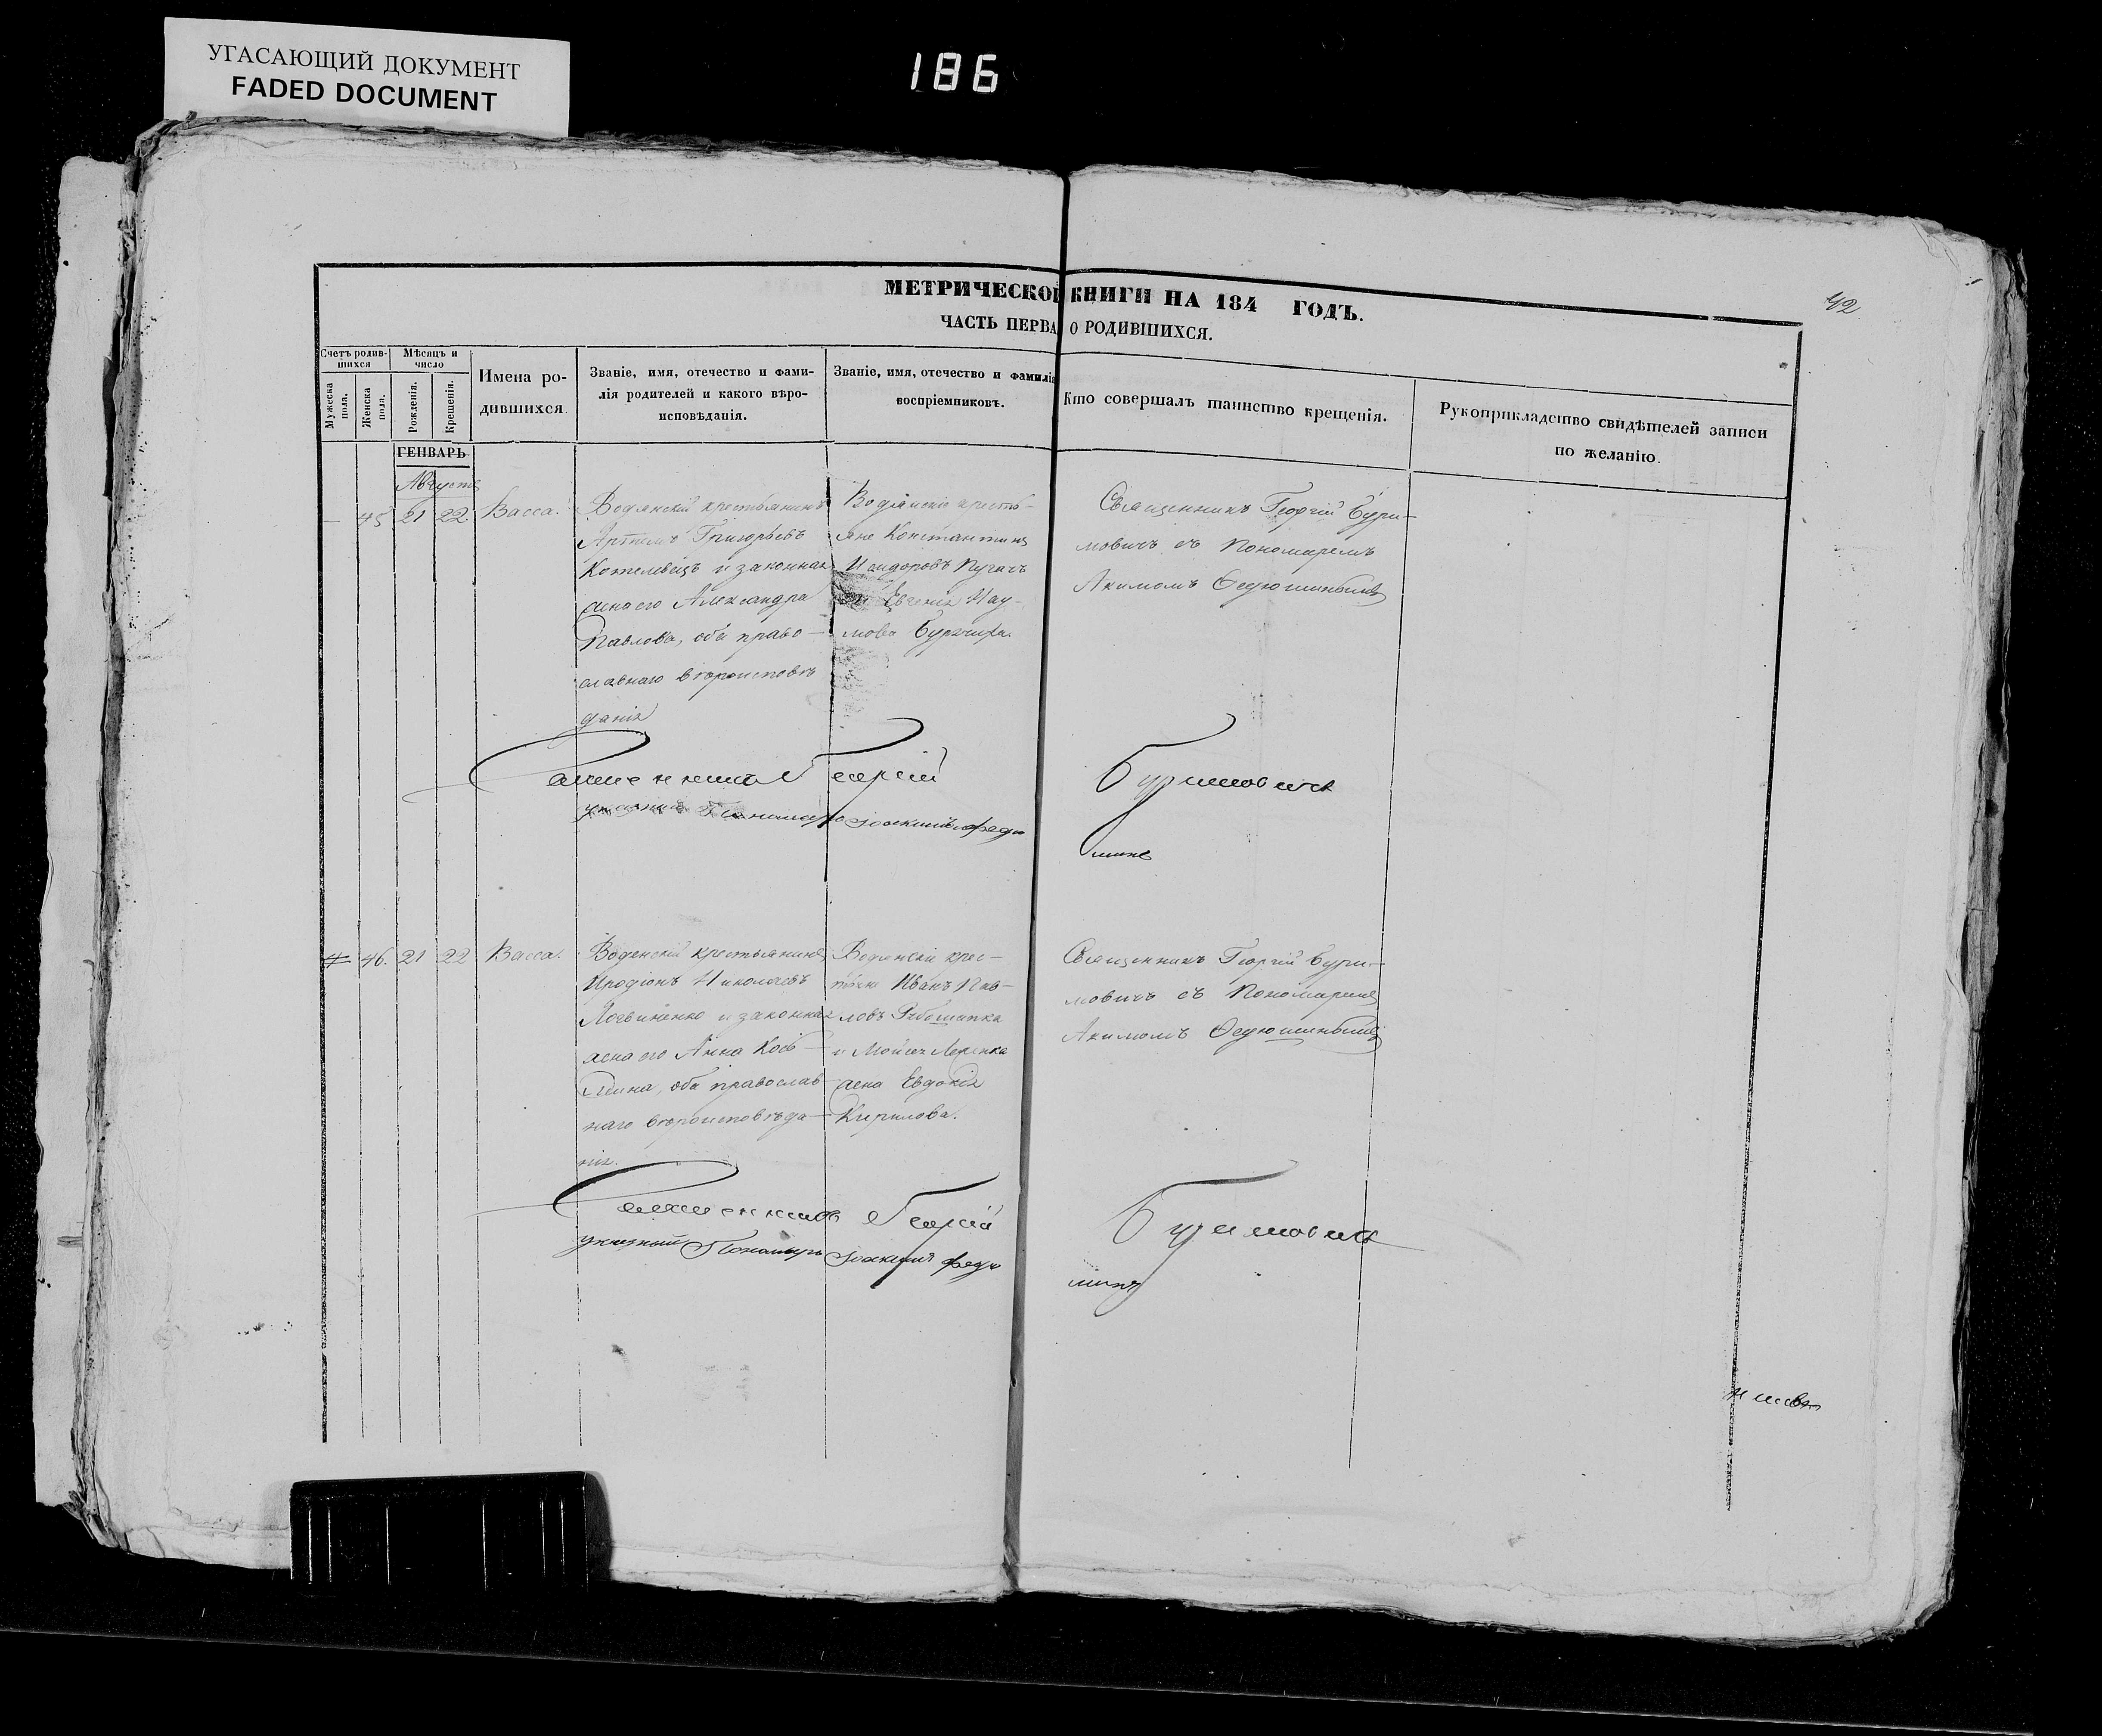 УГАСАЮЩИЙ ДОКУМЕНТ
FADED DOCUMENT
186
42
МЕТРИЧЕСКОЙ КНИГИ НА 184 ГОДЪ.
ЧАСТЬ ПЕРВА О РОДИВШИХСЯ.
Счетъ родившихся
Мужеска пола.
Женска пола.
Мѣсяцъ и число
Рожденія.
Крещенія.
Имена родившихся.
Званіе, имя, отечество и фами-
лія родителей и какого вѣро-
исповѣданія.
Званіе, имя, отечество и фамилія
воспріемниковъ.
Кто совершалъ таинство крещенія.
Рукоприкладство свидѣтелей записи
по желанію.
ГЕНВАРЬ
Августъ
— 45 21 22 Васса.
Водянскій крестьянинъ
Артемъ Григорьевъ
Котелевецъ и законная
жена его Александра
Павлова, оба право-
славнаго вѣроисповѣ
данія
Водянскіе кресть-
яне Константинъ
Исидоровъ Пугачъ
и Евгенія Нау-
мова
Священникъ Георгій Бури-
мовичъ съ Пономаремъ
Акимомъ Ѳедюшинымъ
Священникъ Георгій Буримовичъ
указный Пономарь Іоакимъ Федю
шинъ
46. 21 22 Васса.
Воденскій крестьянинъ
Иродіонъ Николаевъ
Логвиненко и законная
жена его Анна Кос-
мина, оба православ-
наго вѣроисповѣда-
нія.
Водянскіе крес-
тяне Иванъ Пав-
ловъ
и Мойсея
жена Евдокія
Кирилова.
Священникъ Георгій Бури-
мовичъ съ Пономаремъ
Акимомъ Ѳедюшинымъ
Священникъ Георгій Буримовичъ
указный Пономарь Іоакимъ Федю
шинъ